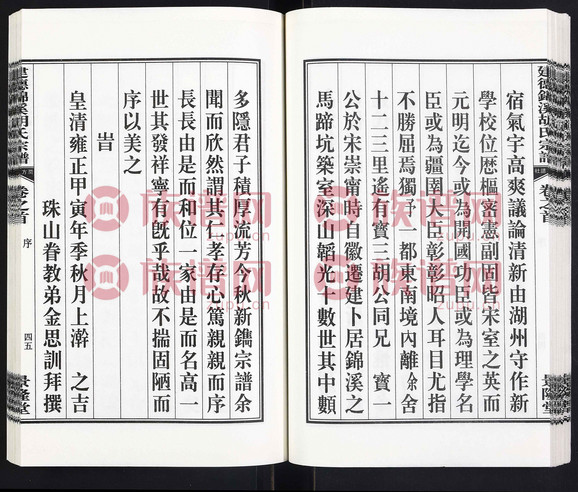 建德錦溪胡氏宗譜
卷之首
景隆堂
宿氣宇高爽議論清新由湖州守作新
學校位歷樞密憲副固皆宋室之英而
元明迄今或為開國功臣或為理學名
臣或為疆圉大臣彰彰昭人耳目尤指
不勝屈焉獨予都東南境內離余舍
十二三里遙有寶三胡公同兄寶一
公於宋崇甯時自徽遷建卜居錦溪之
馬蹄坑築室深山韜光十數世其中頗
多隱君子積厚流芳今秋新鐫宗譜余
聞而欣然謂其仁孝存心篤親親而序
長長由是而和位一家由是而名高一
世其發祥寧有旣乎哉故不揣固陋而
序以美之
旹
皇清雍正甲寅年季秋月上澣之吉
珠山眷教弟金思訓拜撰
建德錦溪胡氏宗譜
卷之首
序
四五
景隆堂
族谱网
zupu.cn
族谱网
zupu.cn
族谱网
zupu.cn
族谱网
zupu.cn